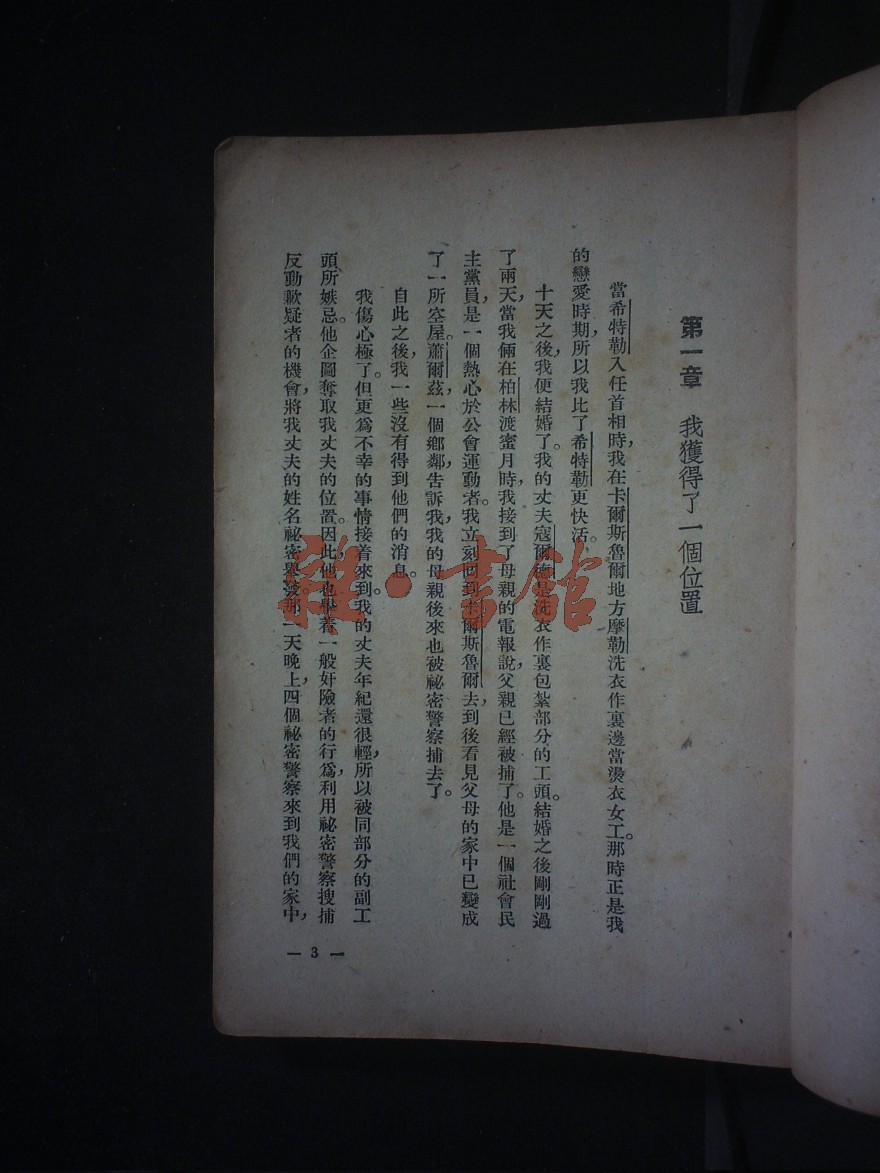 第一章 我獲得了一個位置
當希特勒入任首相時，我在卡爾斯魯爾地方摩勒洗衣作裏邊當燙衣女工。那時正是我
的戀愛時期，所以我比了希特勒更快活。
十天之後，我便結婚了。我的丈夫寇爾德是洗衣作裏包紮部分的工頭。結婚之後剛剛過
了兩天，當我倆在柏林渡蜜月時，我接到了母親的電報說，父親已經被捕了。他是一個社會民
主黨員，是一個熱心於公會運動者。我立刻回到卡爾斯魯爾去，到後看見父母的家中已變成
了一所空屋。蕭爾茲，一個鄉鄰，告訴我，我的母親後來也被祕密警察捕去了。
自此之後，我一些沒有得到他們的消息。
我傷心極了。但更爲不幸的事情接着來到。我的丈夫年紀還很輕，所以被同部分的副工
頭所嫉忌。他企圖奪取我丈夫的位置。因此，他也學着一般奸險者的行爲，利用祕密警察搜捕
反動歉疑者的機會，將我丈夫的姓名祕密舉發。那一天晚上，四個祕密警察來到我們的家中，
— 3 —
雜·書館